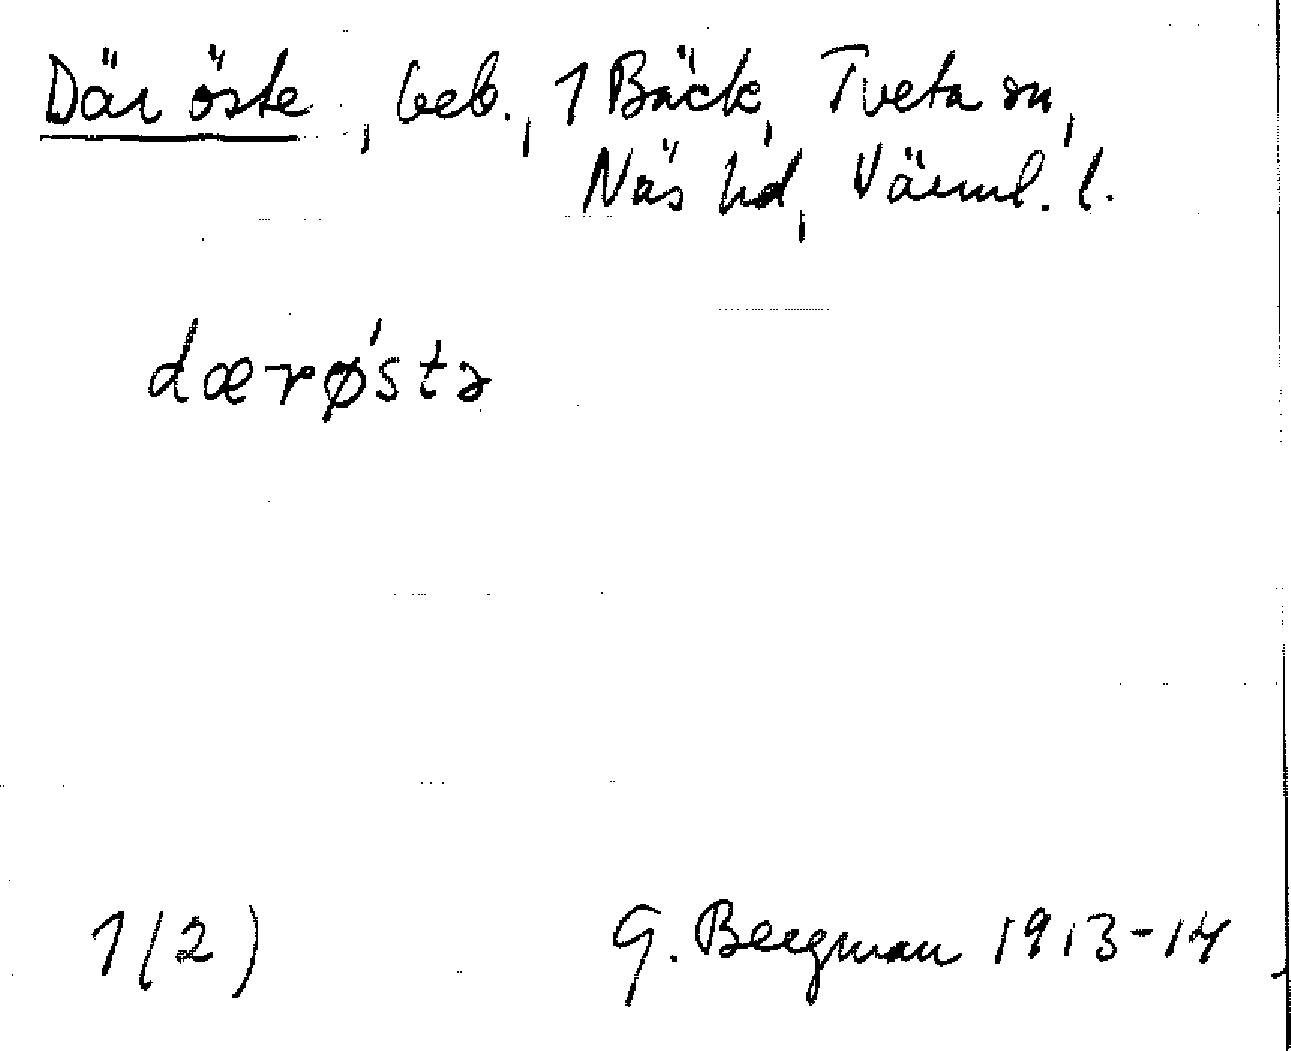 Där öste, beb., 1 Bäck, Tveta sn,
Näs hd, Värml. l.
dærø'stə
1(2) G. Bergman 1913-14